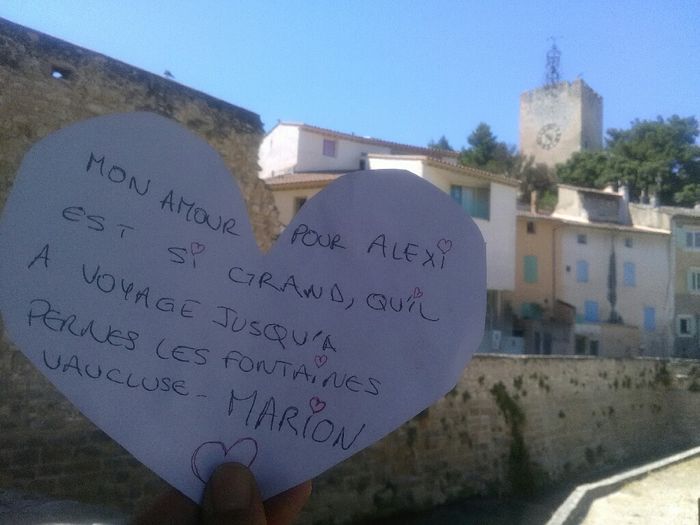 MON AMOUR POUR ALEXi
EST Si GRAND, QU'iL
A VOYAGE JUSQU'A
PERNES LES FONTAiNES
VAUCLUSE - MARiON